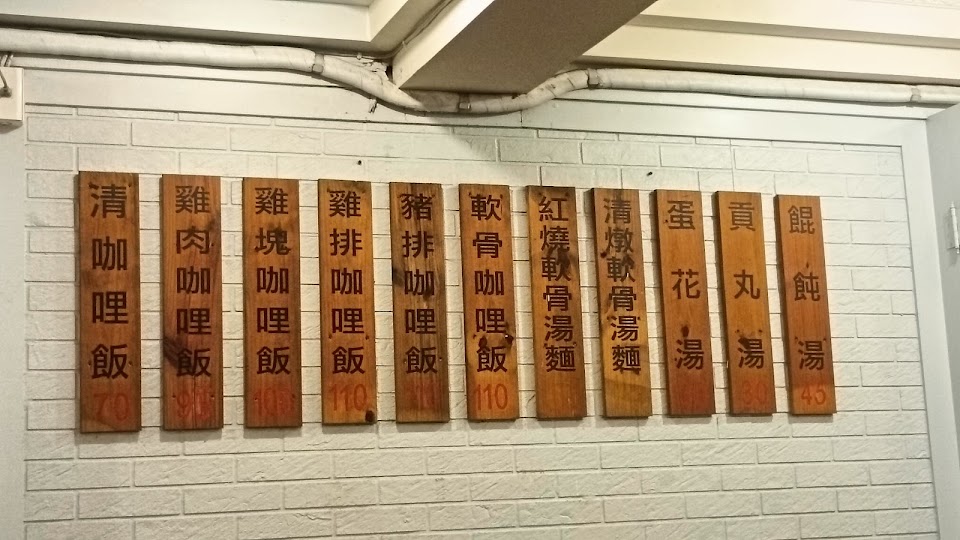 清咖哩飯 70
雞肉咖哩飯 90
雞塊咖哩飯 105
雞排咖哩飯 110
豬排咖哩飯
軟骨咖哩飯 110
紅燒軟骨湯麵
清燉軟骨湯麵
蛋花湯
貢丸湯 30
餛飩湯 45